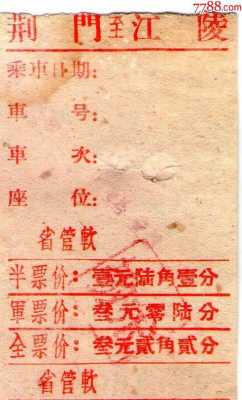 7788.com
荆門至江陵
乘車日期:
車號:
車次:
座位:
省管軟
半票价:壹元陆角壹分
軍票价:叁元零陆分
全票价:叁元貳角貳分
省管軟